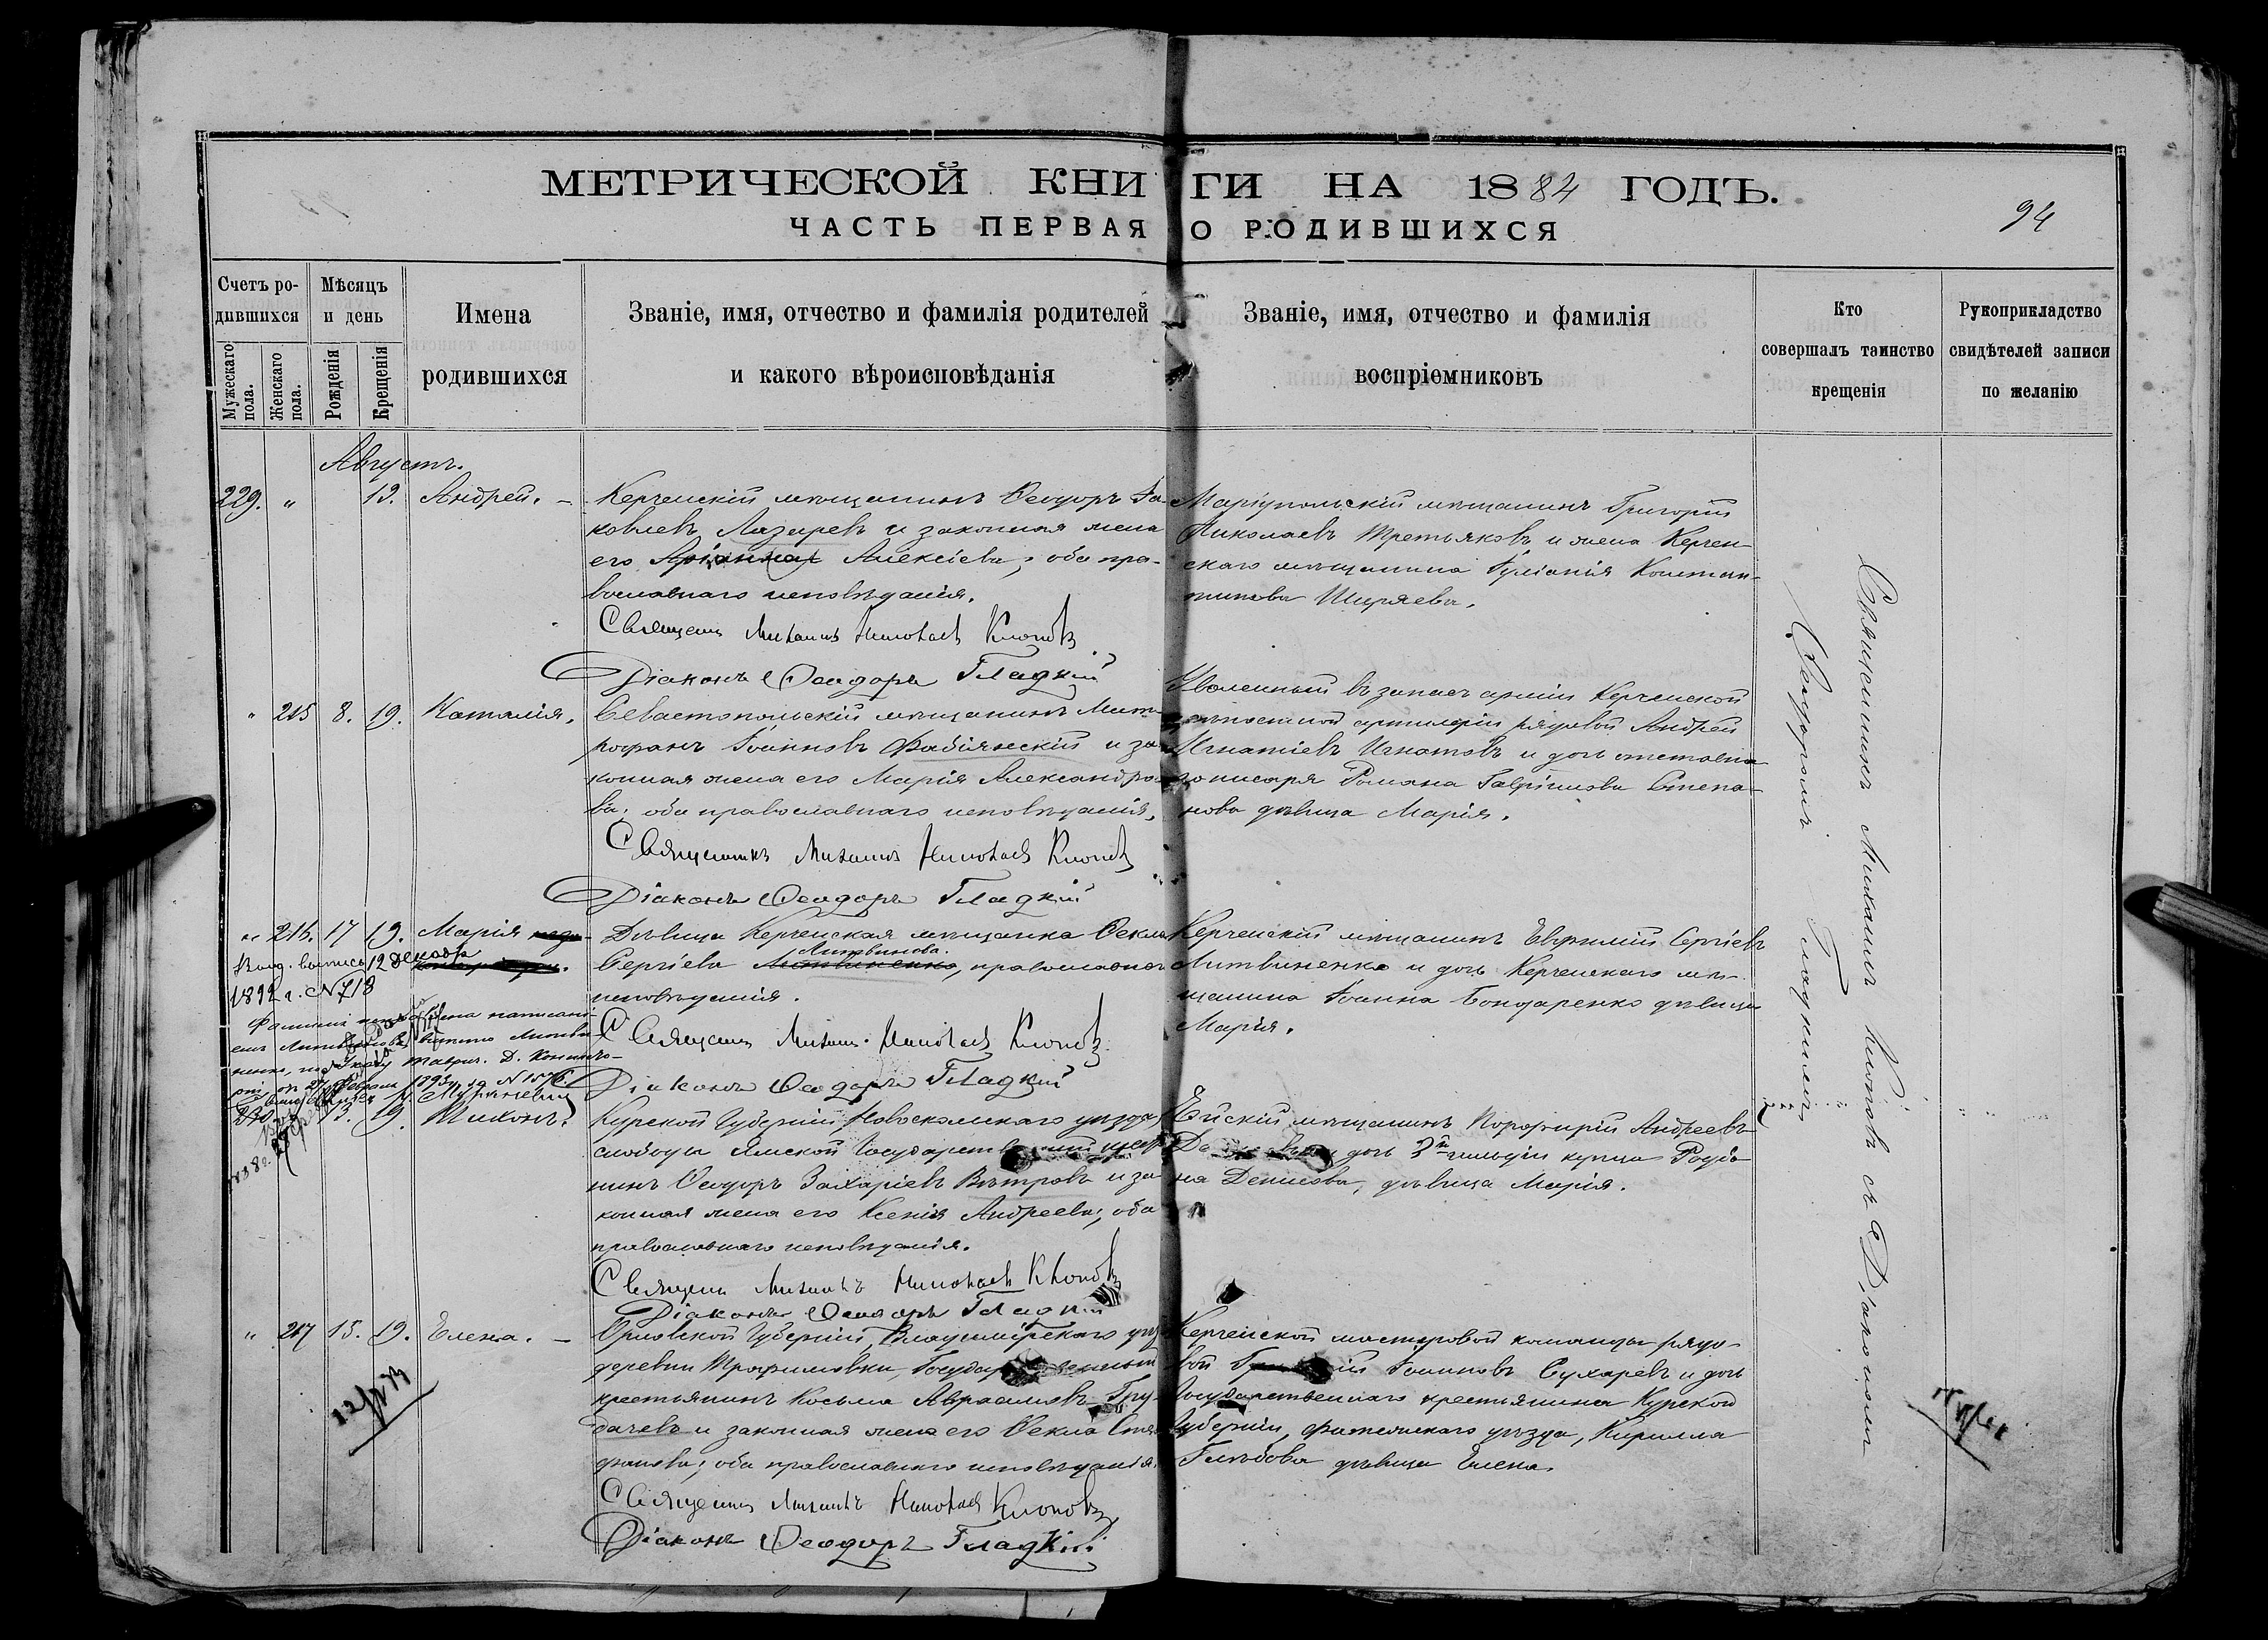 МЕТРИЧЕСКОЙ КНИГИ НА 1884 ГОДЪ.
94
ЧАСТЬ ПЕРВАЯ О РОДИВШИХСЯ
Счетъ родившихся
Мужескаго пола.
Женскаго пола.
Мѣсяцъ и день
Рожденія
Крещенія
Имена
родившихся
Званіе, имя, отчество и фамилія родителей
и какого вѣроисповѣданія
Званіе, имя, отчество и фамилія
воспріемниковъ
Кто
совершалъ таинство
крещенія
Рукоприкладство
свидѣтелей записи
по желанію
Августъ.
229. " 19. Андрей.
Керченскій мѣщанинъ Ѳеодоръ Іа-
ковлевъ Лазаревъ и законная жена
его Алексіева; оба пра-
вославнаго исповѣданія.
Священ Михаилъ Николаевъ Клоповъ
Діаконъ Ѳеодоръ Гладкій
Маріупольскій мѣщанинъ Григорій
Николаевъ Третьяковъ и жена Керчен-
скаго мѣщанина Іуліанія Констан-
тинова Ширяева.
" 215 8. 19. Наталія.
Севастопольскій мѣщанинъ Мит-
рофанъ Іоанновъ Фабіянскій и за-
конная жена его Марія Александро-
ва; оба православнаго исповѣданія.
Священникъ Михаилъ Николаевъ Клоповъ
Діаконъ Ѳеодоръ Гладкій
Уволенный въ запасъ арміи Керченской
крѣпостной артилеріи рядовой Андрей
Игнатіевъ Игнатовъ и дочь отставна-
го писаря Романа Гавріилова Степа-
нова дѣвица Марія.
" 216. 17 19. Марія
Дѣвица Керченская мѣщанка Ѳекла
Литвинова.
Сергіева Литвиненко, православнаго
исповѣданія.
Священ Михаилъ Николаевъ Клоповъ
Діаконъ Ѳеодоръ Гладкій
Керченскій мѣщанинъ Евѳимій Сергіевъ
Литвиненко и дочь Керченскаго мѣ-
щанина Іоанна Бондаренко дѣвица
Марія.
12 декабр
1892 г. №718
230. 13. 19. Тихонъ.
Курской Губерніи, Новоскольскаго уѣзда,
слободы Ямской Государственный крестья-
нинъ Ѳеодоръ Захаріевъ Вѣтровъ и за-
конная жена его Ксенія Андреева; оба
православнаго исповѣданія.
Священ Михаилъ Николаевъ Клоповъ
Діаконъ Ѳеодоръ Гладкій
Ейскій мѣщанинъ Порфирій Андреевъ
дочь 2й гильдіи купца Родіо-
на Денисова, дѣвица Марія.
" 217 15. 19. Елена.
Орловской Губерніи, уѣз
деревни Трофимовки, Государственный
крестьянинъ Косьма Авраамовъ Гру-
дачевъ и законная жена его Ѳекла Сте-
фанова; оба православнаго исповѣданія.
Священ Михаилъ Николаевъ Клоповъ
Діаконъ Ѳеодоръ Гладкій
Керченской мастеровой команды рядо-
вой Іоанновъ Сухаревъ и дочь
Государственнаго крестьянина Курской
Губерніи, Фатежскаго уѣзда, Кирилла
Глѣбова дѣвица Елена.
Священникъ Михаилъ Клоповъ съ Діакономъ
Ѳеодоромъ Гладкимъ